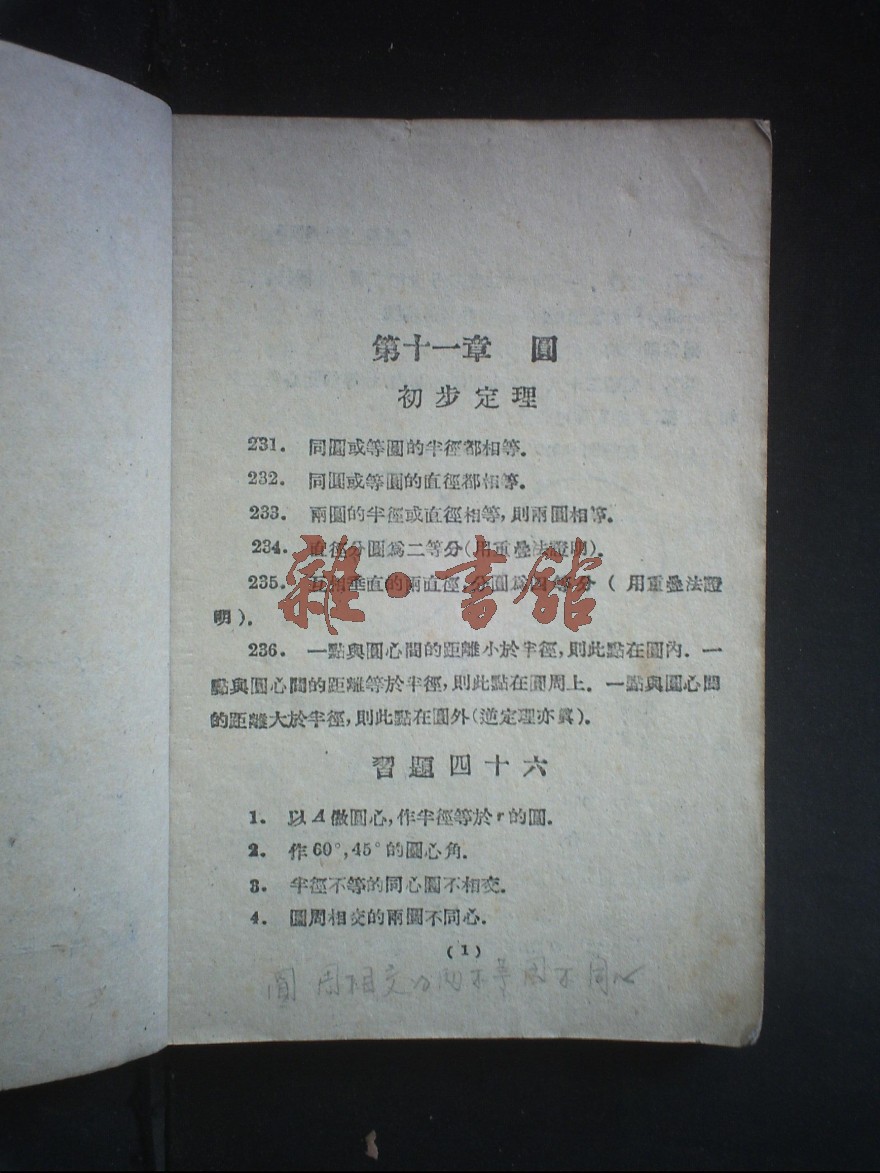 第十一章 圓
初步定理
231. 同圓或等圓的半徑都相等.
232. 同圓或等圓的直徑都相等.
233. 兩圓的半徑或直徑相等,則兩圓相等.
234. 直徑分圓爲二等分(用重疊法證明).
235. 互相垂直的兩直徑,分圓爲四等分(用重疊法證
明).
雜·書館
236. 一點與圓心間的距離小於半徑,則此點在圓內. 一
點與圓心間的距離等於半徑,則此點在圓周上. 一點與圓心間
的距離大於半徑,則此點在圓外(逆定理亦眞).
習題四十六
1. 以A做圓心,作半徑等於r的圓.
2. 作60°,45°的圓心角.
3. 半徑不等的同心圓不相交.
4. 圓周相交的兩圓不同心.
(1)
圓周相交的兩不等圓不同心